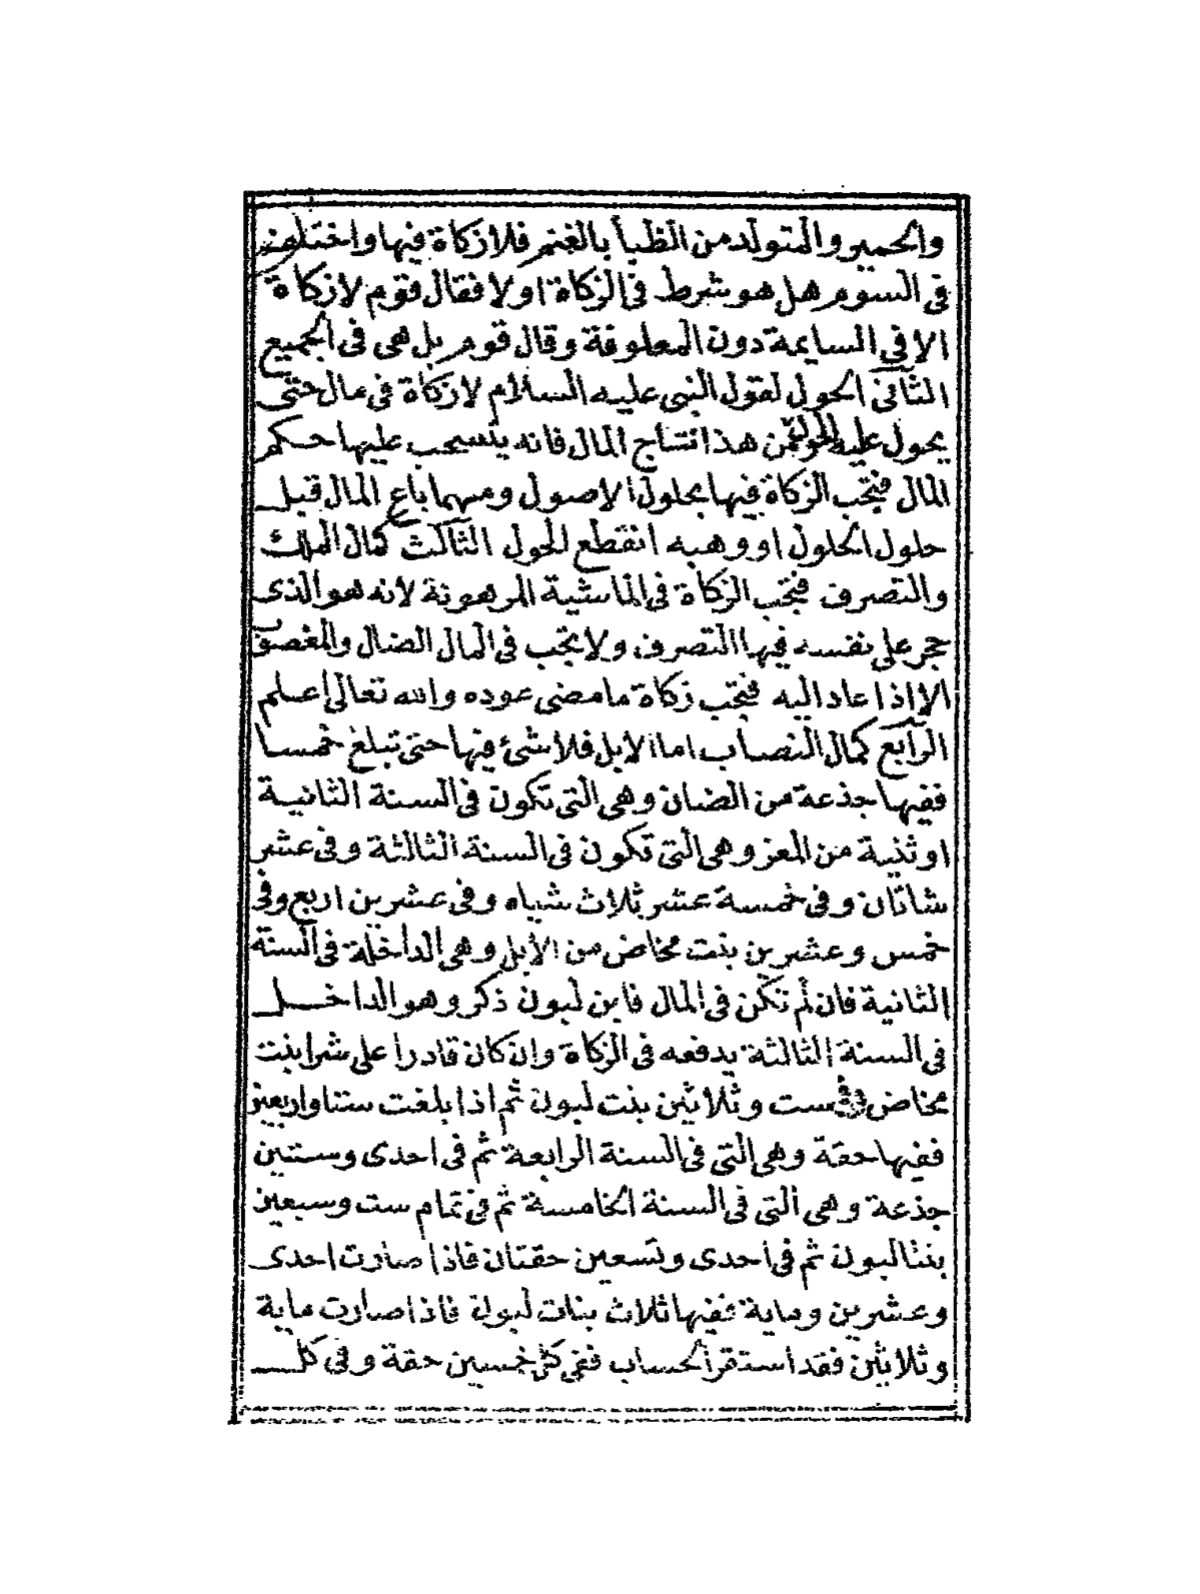 والحمير والمتولد من الظبأ بالغنم فلا زكاة فيها واختلف
فى السوم هل هو شرط فى الزكاة اولا فقال قوم لازكاة
الا فى السايمة دون المعلوفة وقال قوم بل هى فى الجميع
الثانى الحول لقول النبى عليه السلام لازكاة فى مال حتى
يحول عليه الحول من هذا نتاج المال فانه ينسحب عليها حكم
المال فتجب الزكاة فيها بحلول الاصول ومهما باع المال قبل
حلول الحلول او وهبه انقطع الحول الثالث كمال الملك
والتصرف فتجب الزكاة فى الماشية المرهونة لانه هو الذى
حجر على نفسه فيها التصرف ولا تجب فى المال الضال والمغصوب
الا اذا عاد اليه فتجب زكاة ما مضى عوده والله تعالى اعلم
الرابع كمال النصاب اما الابل فلا شئ فيها حتى تبلغ خمسا
ففيها جذعة من الضان وهى التى تكون فى السنة الثانية
او ثنية من المعز وهى التى تكون فى السنة الثالثة وفى عشر
شاتان وفى خمسة عشر ثلاث شياه وفى عشرين اربع وفى
خمس وعشرين بنت مخاض من الابل وهى الداخلة فى السنة
الثانية فان لم تكن فى المال فابن لبون ذكر وهو الداخل
فى السنة الثالثة يدفعه فى الزكاة وان كان قادرا على شرا بنت
مخاض وفى ست وثلاثين بنت لبون ثم اذا بلغت ستا واربعين
ففيها حقة وهى التى فى السنة الرابعة ثم فى احدى وستين
جذعة وهى التى فى السنة الخامسة ثم فى تمام ست وسبعين
بنتا لبون ثم فى احدى وتسعين حقتان فاذا صارت احدى
وعشرين وماية ففيها ثلاث بنات لبون فاذا صارت ماية
وثلاثين فقد استقر الحساب ففى كل خمسين حقة وفى كل